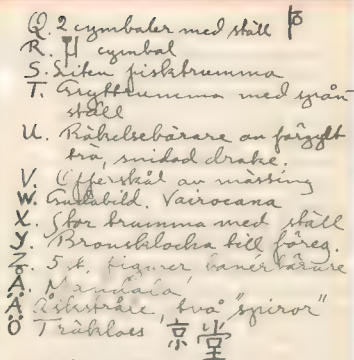 Q. 2 cymbaler med ställ
R. cymbal
S. Liten fisktrumma
T. Gryttrumma med
ställ
U. Rökelsebärare av förgyllt
trä, snidad drake.
V. Offerskål av mässing
W. Gudabild. Vairocana
X. Stor trumma med ställ
Y. Bronsklocka till föreg.
Z. 5 st. figurer, banérbärare
Å. Mandala,
Ä. två "spiror"
Ö Träkloss 京堂